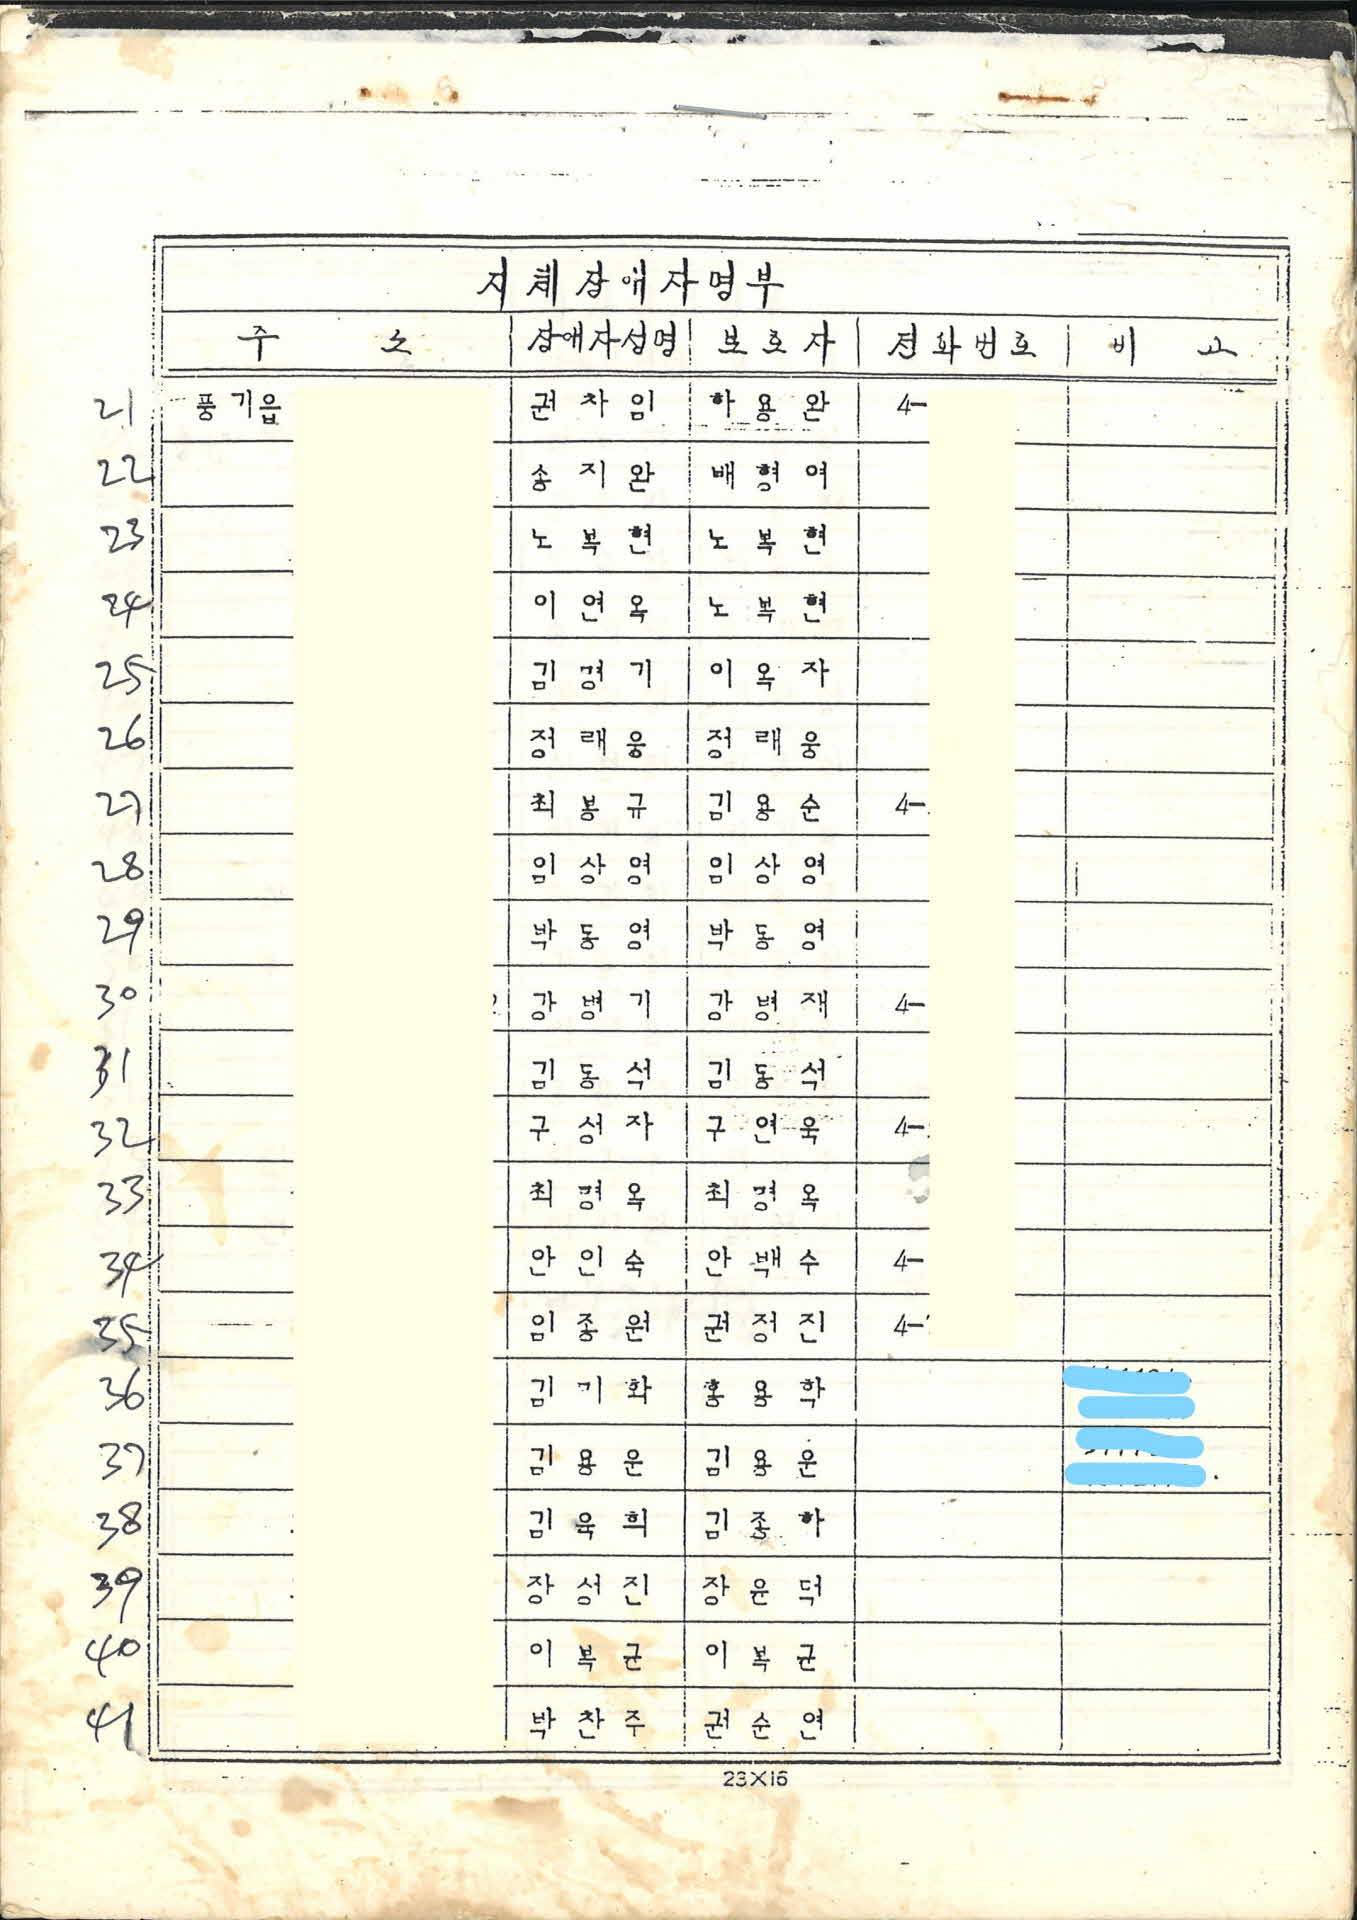 지체장애자명부
주 소 장애자성명 보호자 전화번호 비고
21 풍기읍 권차임 하용완 4-
22 송지완 배형여
23 노복현 노복현
24 이연옥 노복현
25 김명기 이옥자
26 정래웅 정래웅
27 최봉규 김용순 4-
28 임상영 임상영
29 박동영 박동영
30 강병기 강병재 4-
31 김동석 김동석
32 구성자 구연욱 4-
33 최명옥 최명옥
34 안인숙 안백수 4-
35 임종원 권정진 4-
36 김기화 홍용학
37 김용운 김용운
38 김욱희 김종하
39 장성진 장윤덕
40 이복균 이복균
41 박찬주 권순연
23X16